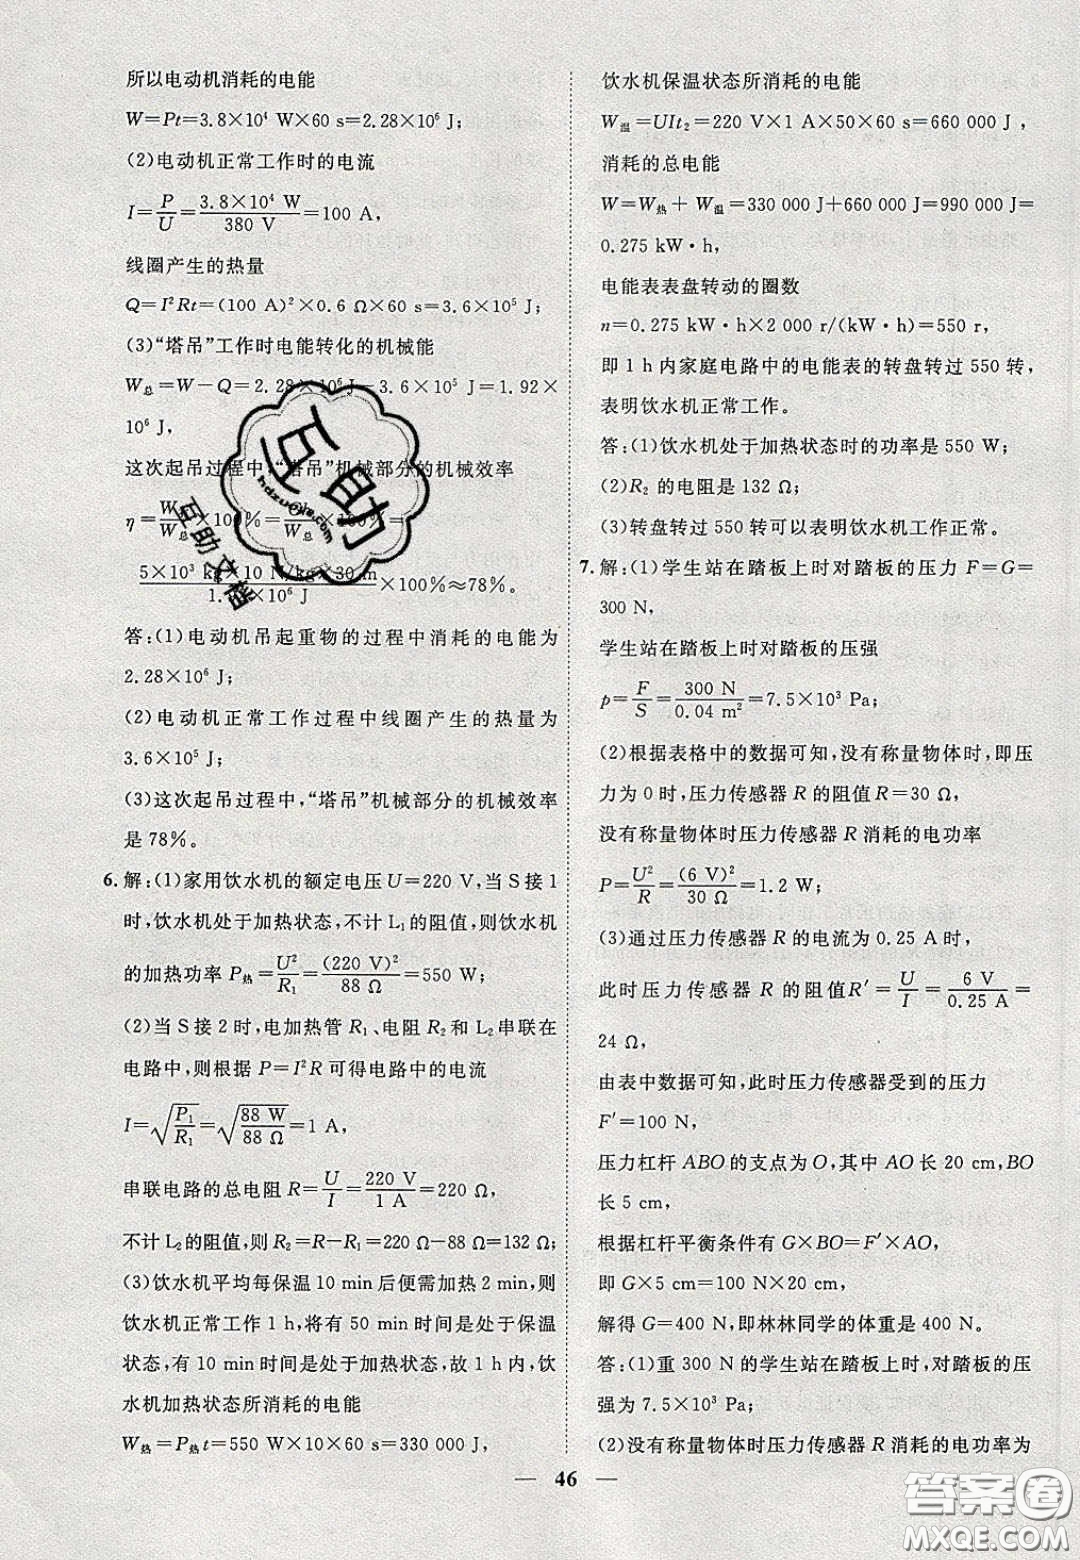 所以电动机消耗的电能
W=Pt=3.8×10⁴ W×60 s=2.28×10⁶ J;
(2)电动机正常工作时的电流
I=P/U=3.8×10⁴ W/380 V=100 A,
线圈产生的热量
Q=I²Rt=(100 A)²×0.6 Ω×60 s=3.6×10⁵ J;
(3)“塔吊”工作时电能转化的机械能
W总=W-Q=2.28×10⁶ J-3.6×10⁵ J=1.92×
10⁶ J,
这次起吊过程中,“塔吊”机械部分的机械效率
η=W/W总×100%=/W总×100%=
5×10³ kg×10 N/kg×30 m/1. ×10⁶ J×100%≈78%。
答:(1)电动机吊起重物的过程中消耗的电能为
2.28×10⁶ J;
(2)电动机正常工作过程中线圈产生的热量为
3.6×10⁵ J;
(3)这次起吊过程中,“塔吊”机械部分的机械效率
是78%。
6.解:(1)家用饮水机的额定电压U=220 V,当S接1
时,饮水机处于加热状态,不计L₁的阻值,则饮水机
的加热功率P热=U²/R₁=(220 V)²/88 Ω=550 W;
(2)当S接2时,电加热管R₁、电阻R₂和L₂串联在
电路中,则根据P=I²R可得电路中的电流
I=√(P₁/R₁)=√(88 W/88 Ω)=1 A,
串联电路的总电阻R=U/I=220 V/1 A=220 Ω,
不计L₂的阻值,则R₂=R-R₁=220 Ω-88 Ω=132 Ω;
(3)饮水机平均每保温10 min后便需加热2 min,则
饮水机正常工作1 h,将有50 min时间是处于保温
状态,有10 min时间是处于加热状态,故1 h内,饮
水机加热状态所消耗的电能
W热=P热t=550 W×10×60 s=330 000 J,
饮水机保温状态所消耗的电能
W温=UIt₂=220 V×1 A×50×60 s=660 000 J,
消耗的总电能
W=W热+W温=330 000 J+660 000 J=990 000 J=
0.275 kW·h,
电能表表盘转动的圈数
n=0.275 kW·h×2 000 r/(kW·h)=550 r,
即1 h内家庭电路中的电能表的转盘转过550转,
表明饮水机正常工作。
答:(1)饮水机处于加热状态时的功率是550 W;
(2)R₂的电阻是132 Ω;
(3)转盘转过550转可以表明饮水机工作正常。
7.解:(1)学生站在踏板上时对踏板的压力F=G=
300 N,
学生站在踏板上时对踏板的压强
p=F/S=300 N/0.04 m²=7.5×10³ Pa;
(2)根据表格中的数据可知,没有称量物体时,即压
力为0时,压力传感器R的阻值R=30 Ω,
没有称量物体时压力传感器R消耗的电功率
P=U²/R=(6 V)²/30 Ω=1.2 W;
(3)通过压力传感器R的电流为0.25 A时,
此时压力传感器R的阻值R′=U/I=6 V/0.25 A=
24 Ω,
由表中数据可知,此时压力传感器受到的压力
F′=100 N,
压力杠杆ABO的支点为O,其中AO长20 cm,BO
长5 cm,
根据杠杆平衡条件有G×BO=F′×AO,
即G×5 cm=100 N×20 cm,
解得G=400 N,即林林同学的体重是400 N。
答:(1)重300 N的学生站在踏板上时,对踏板的压
强为7.5×10³ Pa;
(2)没有称量物体时压力传感器R消耗的电功率为
46
互助
互助文档
答案圈
MXQE.COM